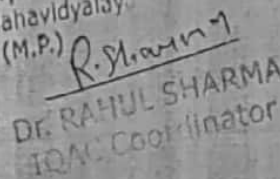 ahavidyalay
(M.P.)
R. Sharma
Dr. RAHUL SHARMA
IQAC Coordinator